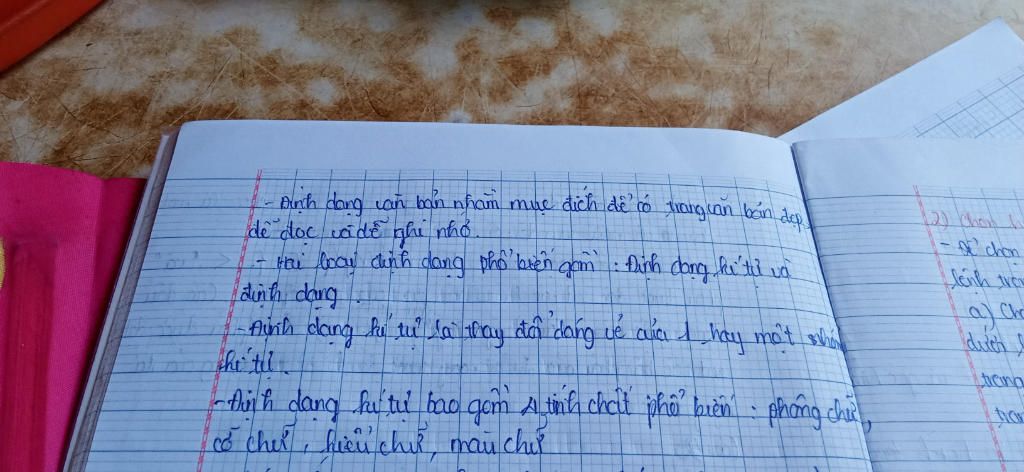 - Định dạng văn bản nhằm mục đích để có trang văn bản đẹp,
dễ đọc và dễ ghi nhớ.
- Hai loại định dạng phổ biến gồm : Định dạng kí tự và
định dạng
- Định dạng kí tự là thay đổi dáng vẻ của 1 hay một nhóm
kí tự.
- Định dạng kí tự bao gồm 4 tính chất phổ biến : phông chữ,
cỡ chữ, kiểu chữ, màu chữ
2) Chọn
- Để chọn
a) Ch
trang